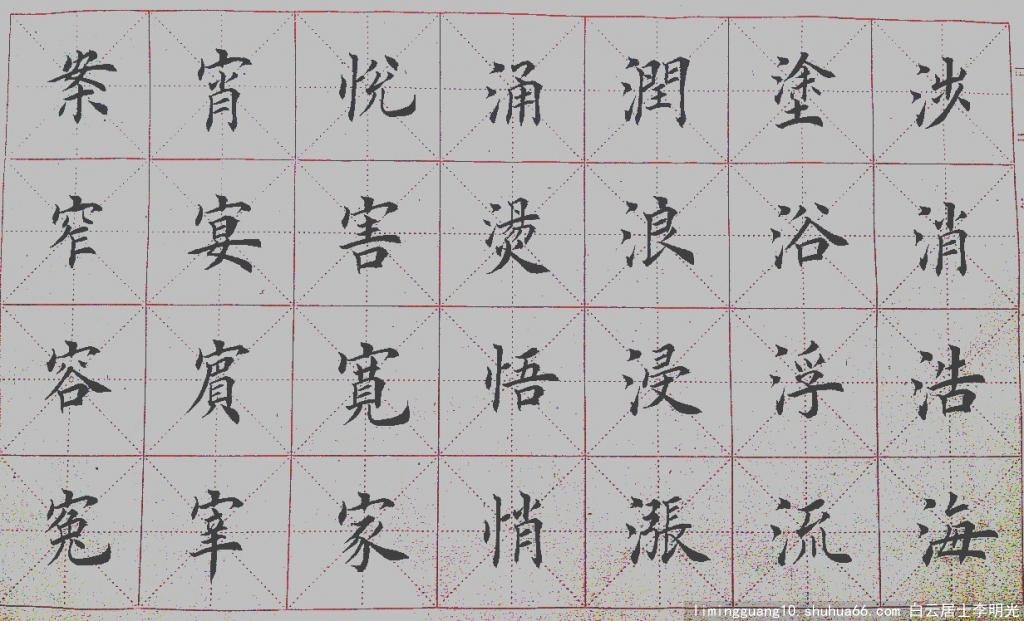 涉消浩海
塗浴浮流
潤浪浸漲
涌燙悟悄
悦害寬家
宵宴賓宰
案窄容寃
limingguang10.shuhua66.com 白云居士李明光